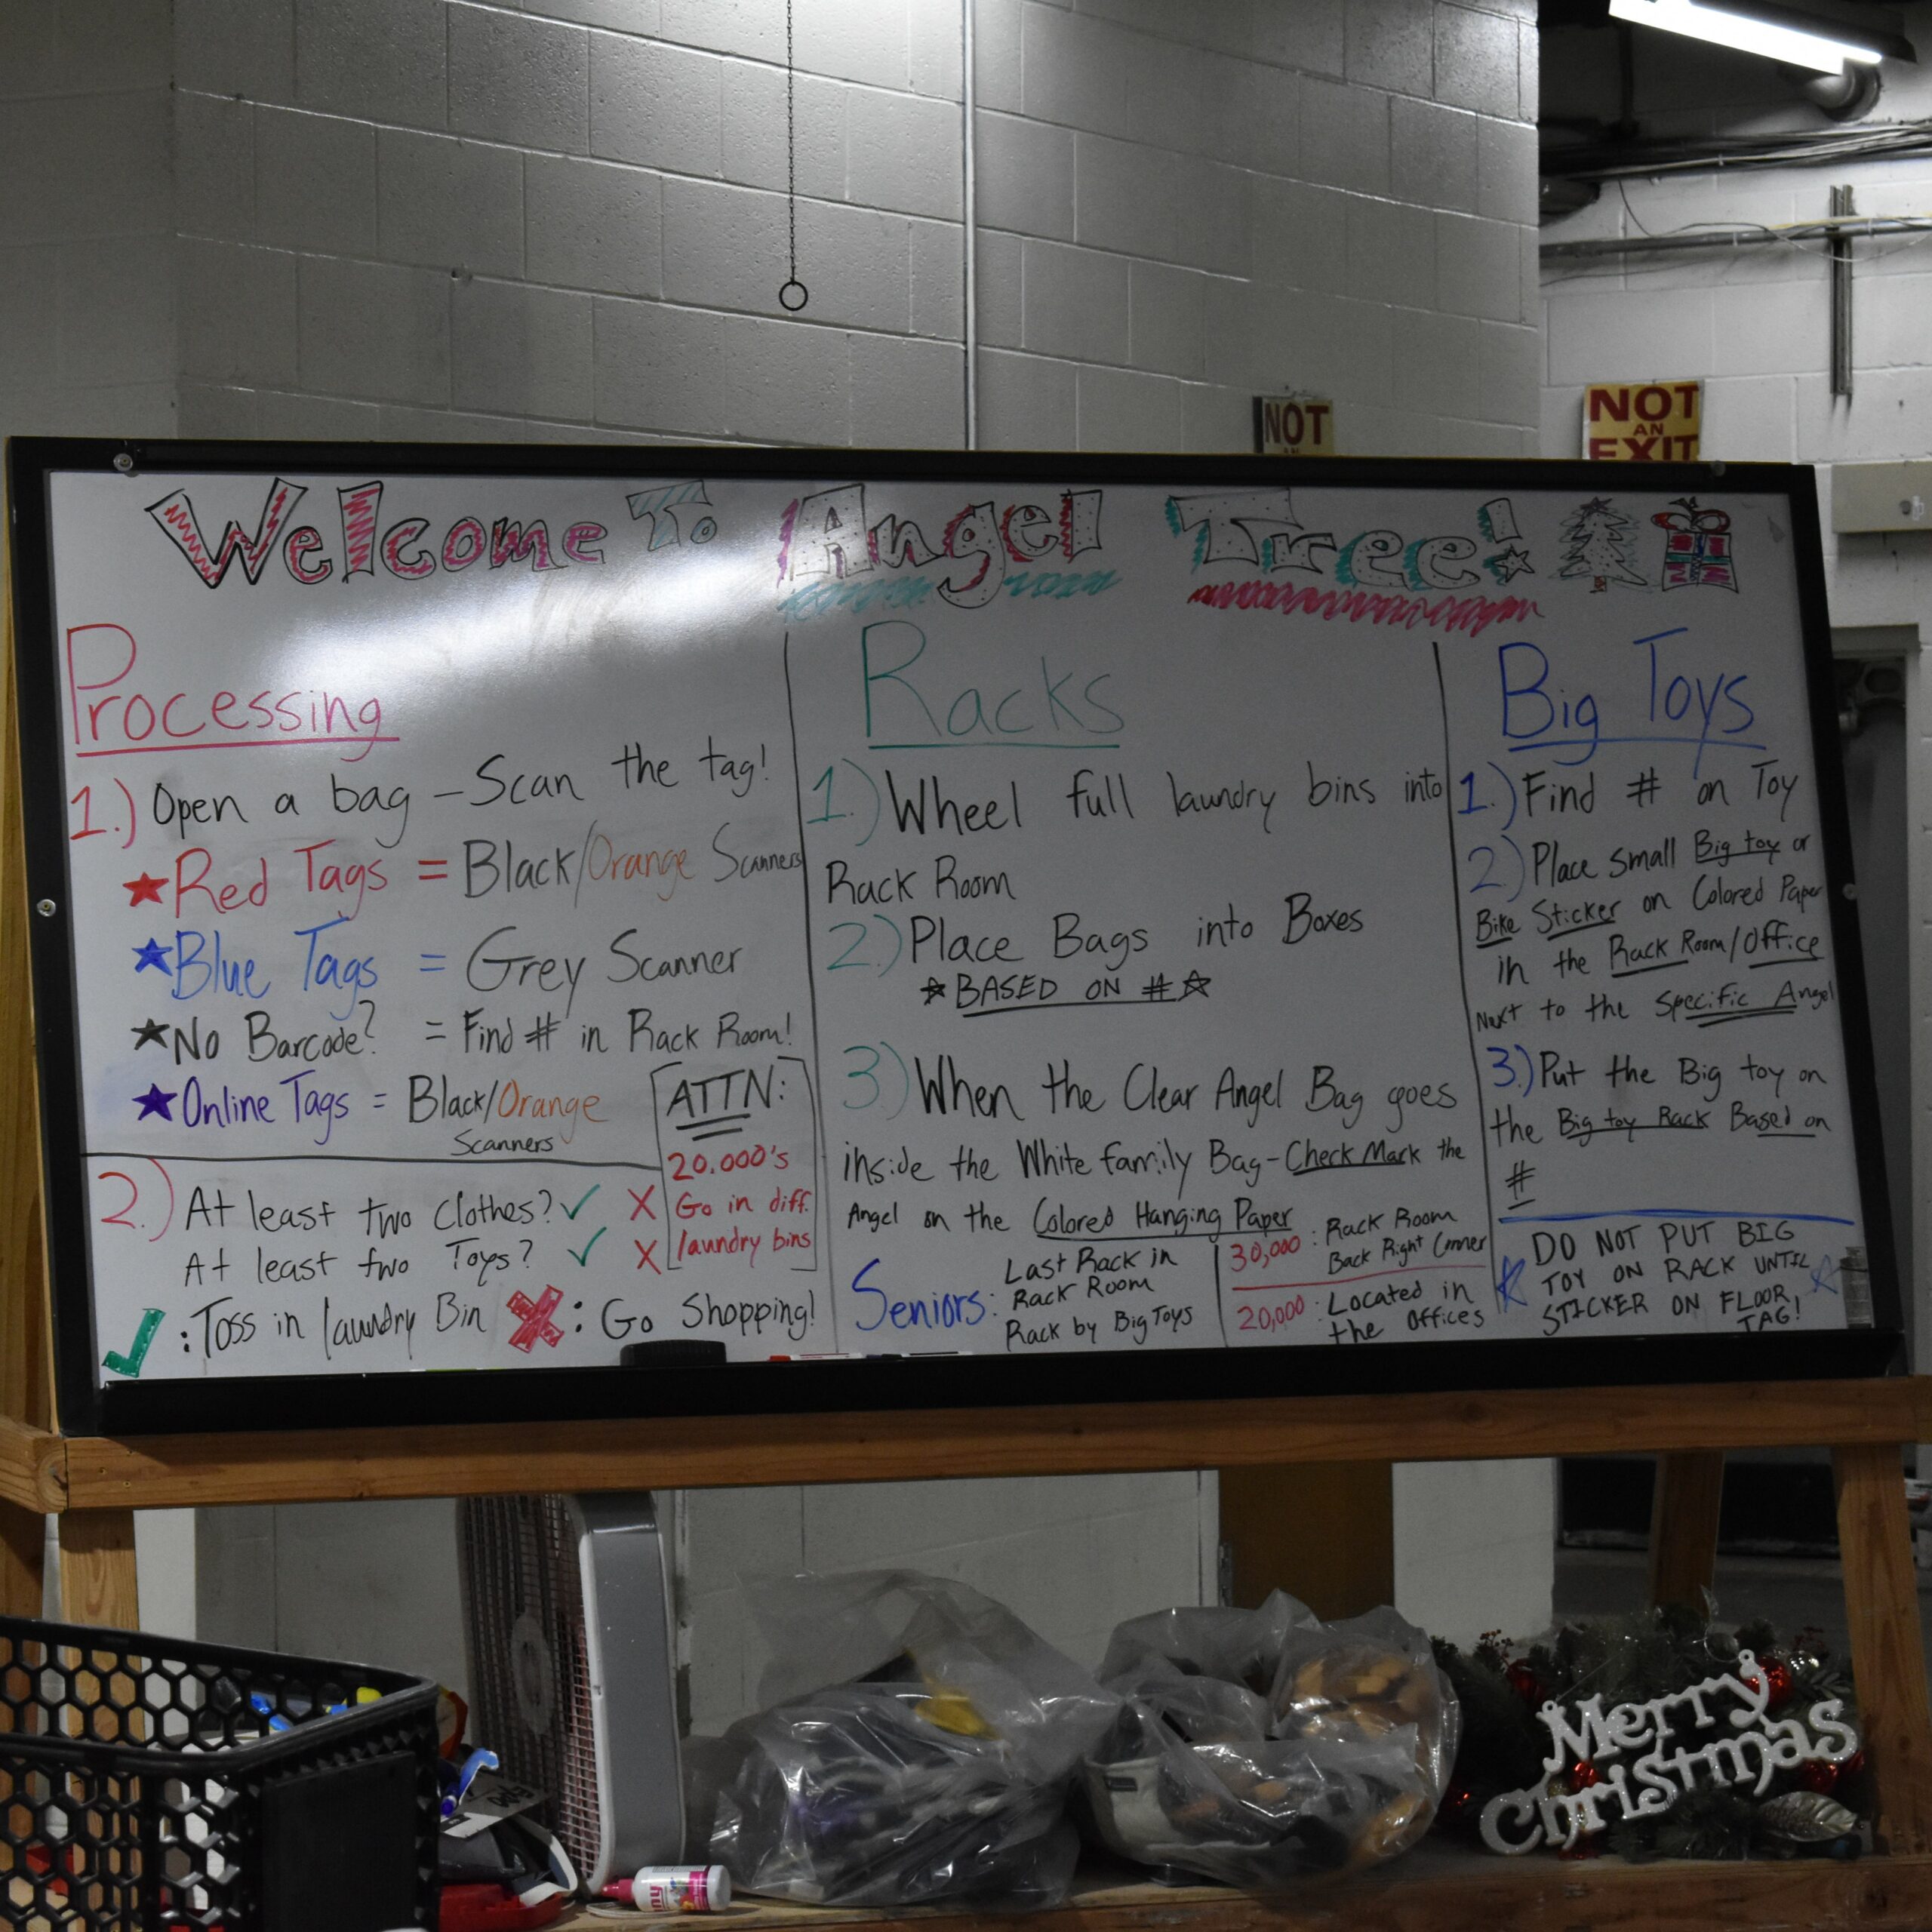 NOT
NOT
AN
EXIT
Welcome To Angel Tree!
Processing
1.) Open a bag – Scan the tag!
Red Tags = Black/Orange Scanners
Blue Tags = Grey Scanner
No Barcode? = Find # in Rack Room!
Online Tags = Black/Orange
Scanners
ATTN:
20.000's
Go in diff.
laundry bins
2.) At least two Clothes? ✓ X
At least two Toys? ✓ X
✓: Toss in laundry Bin X: Go Shopping!
Racks
1.) Wheel full laundry bins into
Rack Room
2.) Place Bags into Boxes
BASED ON #
3.) When the Clear Angel Bag goes
inside the White family Bag - Check Mark the
Angel on the Colored Hanging Paper
Seniors: Last Rack in
Rack Room
Rack by Big Toys
30,000: Rack Room
Back Right Corner
20,000: Located in
the Offices
Big Toys
1.) Find # on Toy
2.) Place small Big toy or
Bike Sticker on Colored Paper
in the Rack Room/Office
Next to the Specific Angel
3.) Put the Big toy on
the Big toy Rack Based on
#
DO NOT PUT BIG
TOY ON RACK UNTIL
STICKER ON FLOOR
TAG!
Merry
Christmas